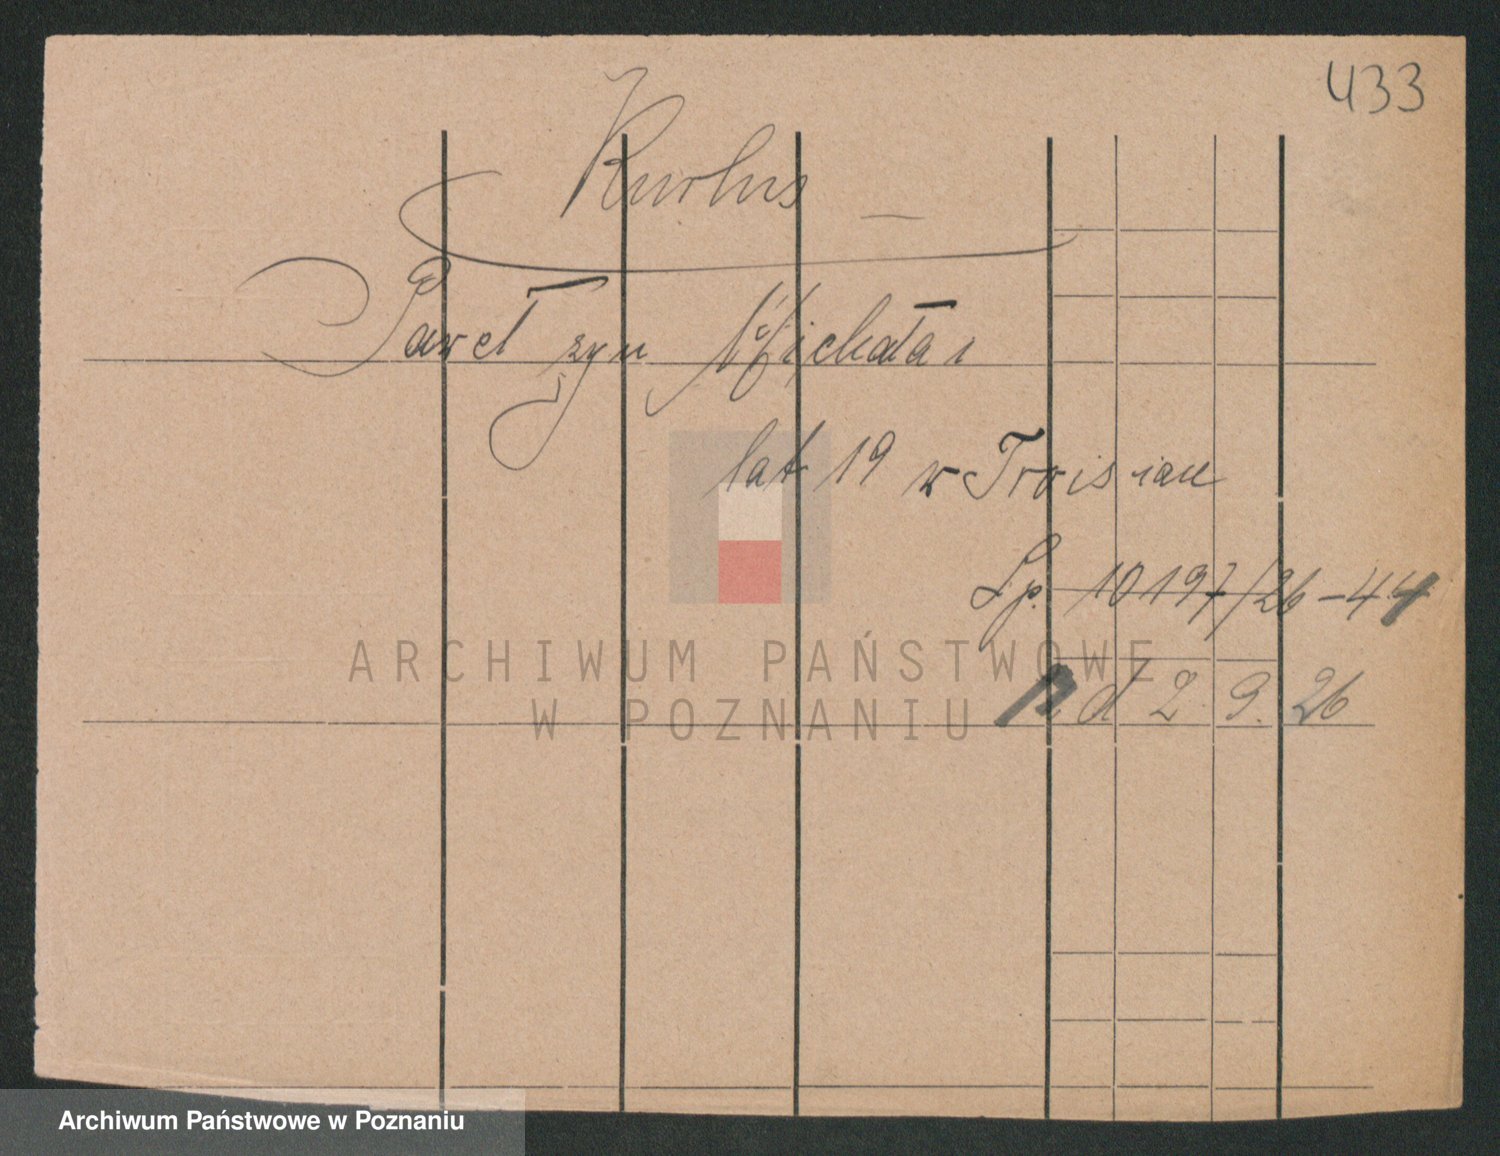 433
Kurlus
Paweł syn Michała
lat 19 w Troisiau
Lp. 10197/26-44
z d 2 9. 26
ARCHIWUM PAŃSTWOWE
W POZNANIU
Archiwum Państwowe w Poznaniu